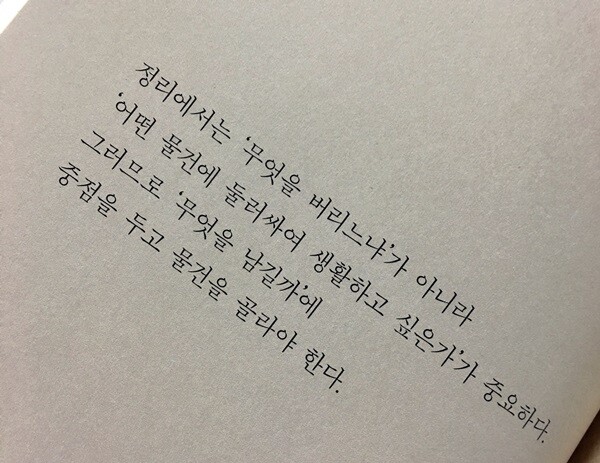 정리에서는 ‘무엇을 버리느냐’가 아니라
‘어떤 물건에 둘러싸여 생활하고 싶은가’가 중요하다.
그러므로 ‘무엇을 남길까’에
중점을 두고 물건을 골라야 한다.